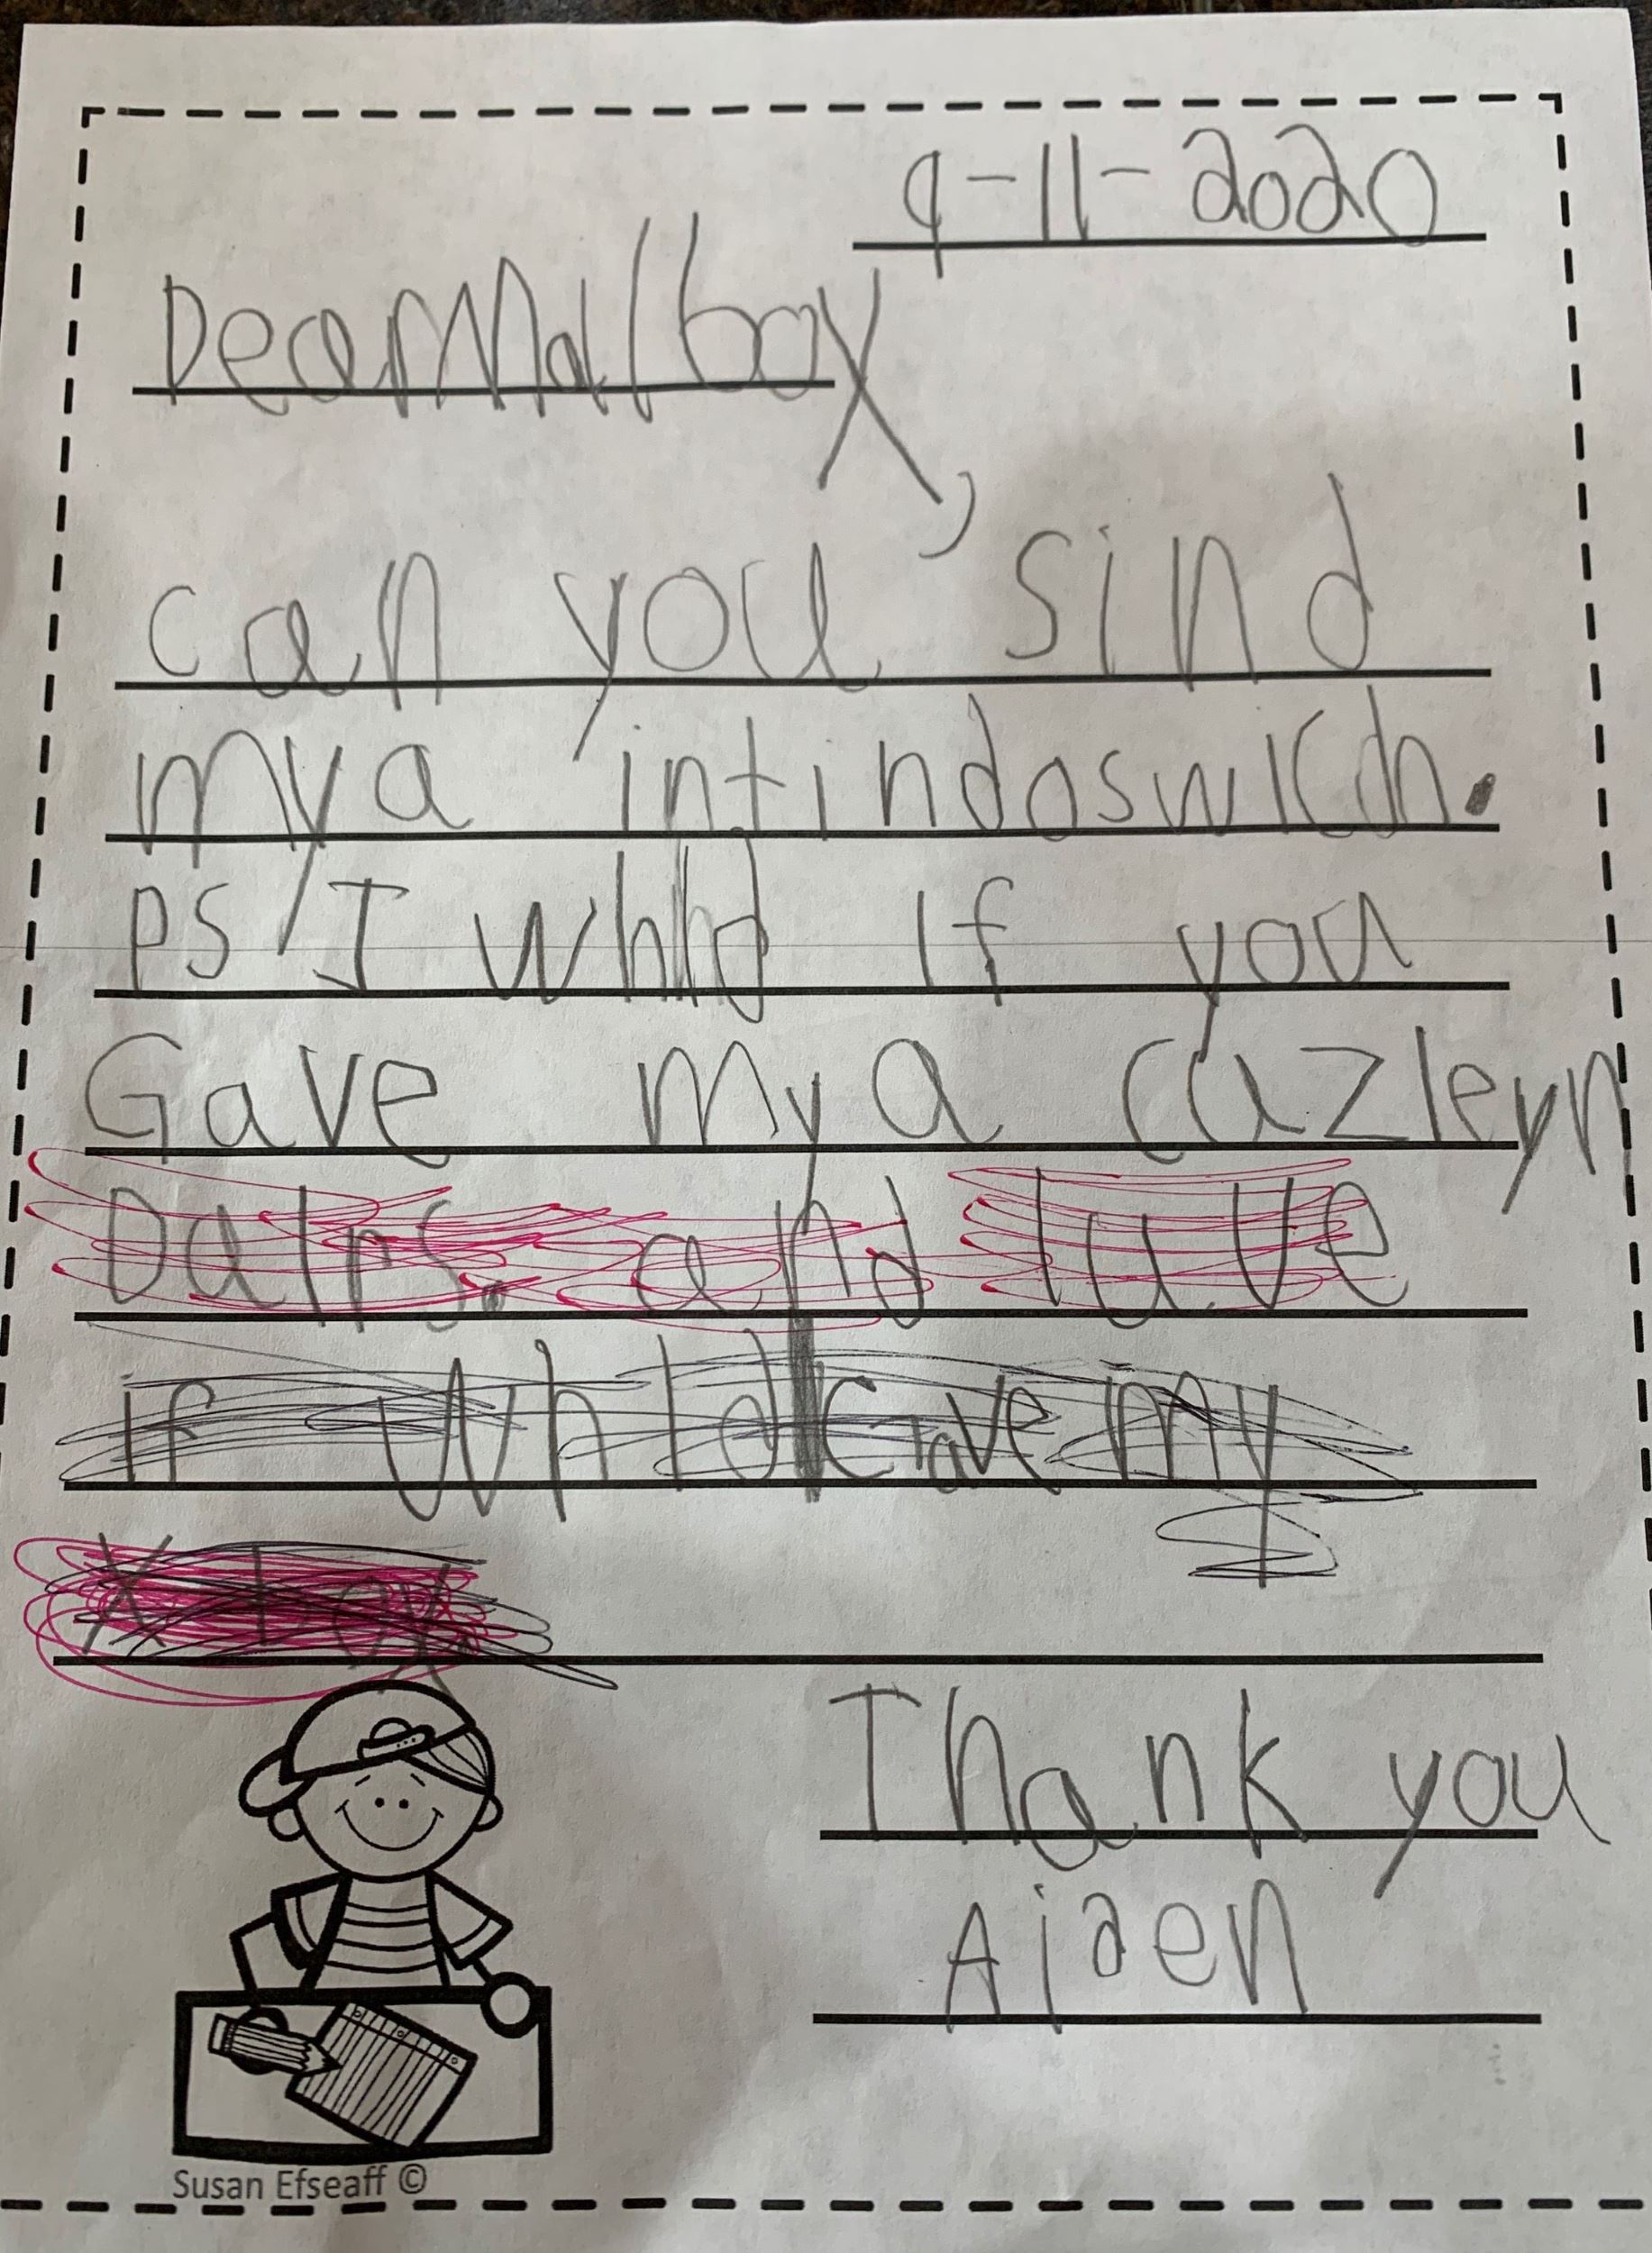 9-11-2020
Dear Malbox,
can you sind
my a intindoswich.
PS I whld if you
Gave my a cazleyn
Dalrs. and luve
if whld Gave my
X box
Thank you
Aiden
Susan Efseaff ©